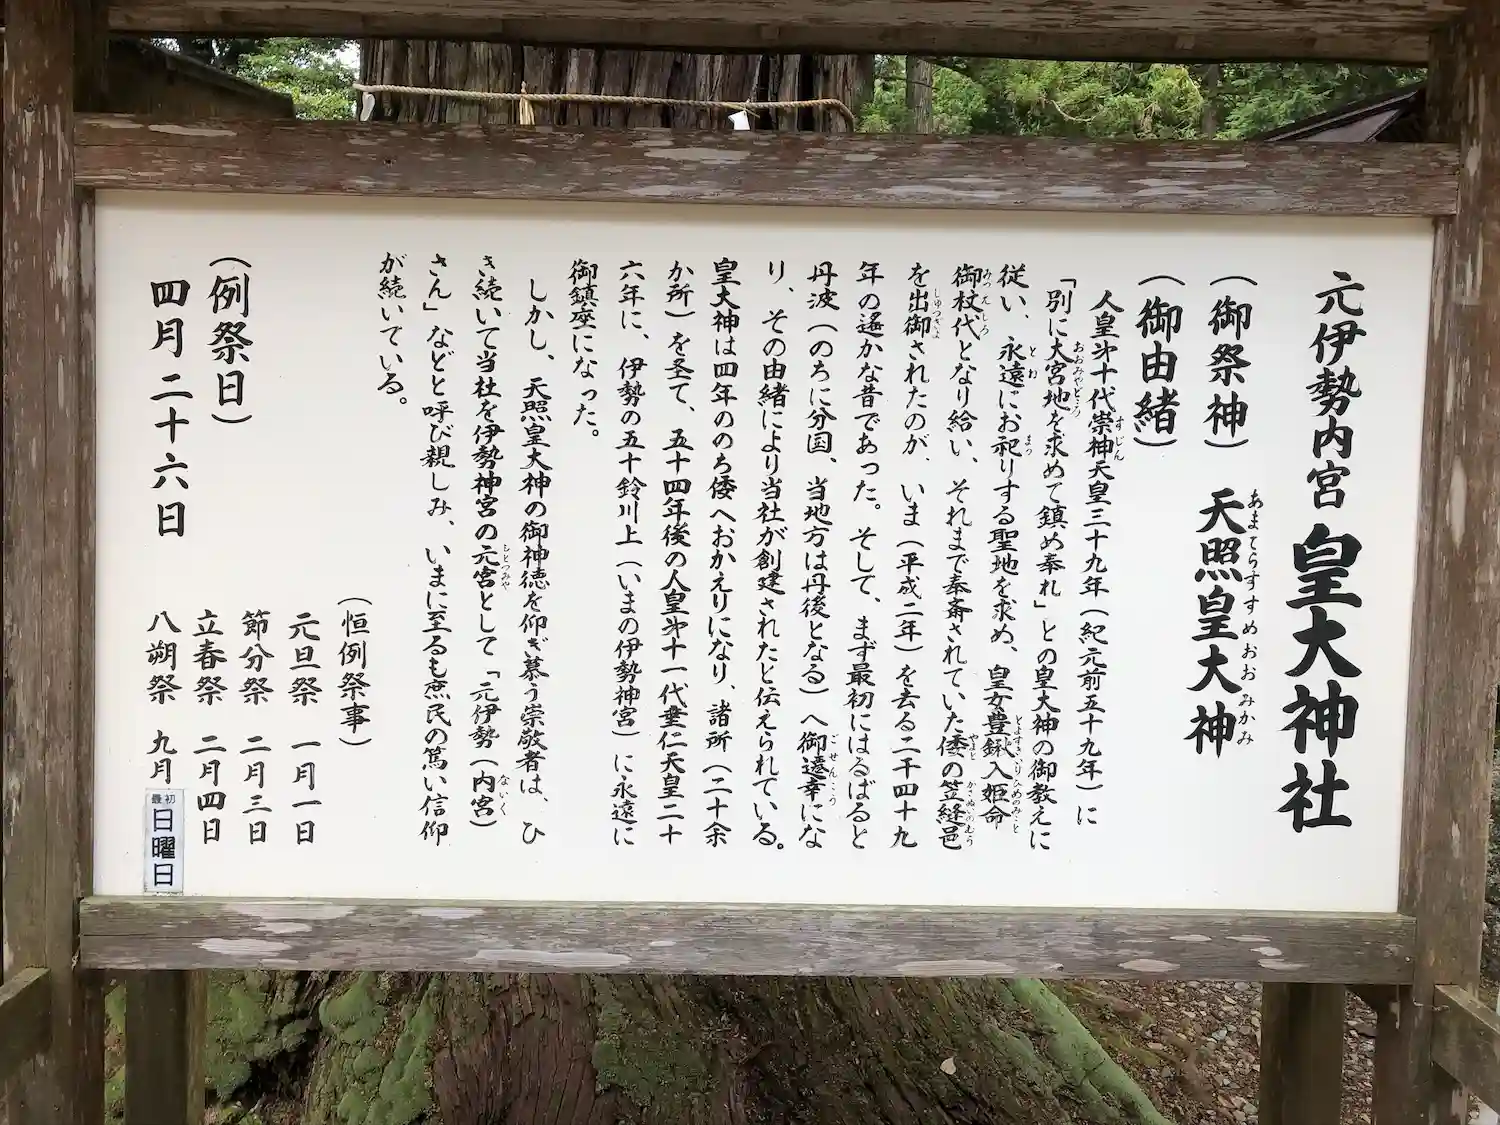 元伊勢内宮 皇大神社
（御祭神） 天照皇大神
あまてらすすめおおみかみ
（御由緒）
人皇第十代崇神天皇三十九年（紀元前五十九年）に
すじん
「別に大宮地を求めて鎮め奉れ」との皇大神の御教えに
おおみやどころ
従い、永遠にお祀りする聖地を求め、皇女豊鍬入姫命
とわ まつ とよすきいりひめのみこと
御杖代となり給い、それまで奉斎されていた倭の笠縫邑
みつえしろ やまと かさぬいのむら
を出御されたのが、いま（平成二年）を去る二千四十九
しゅつぎょ
年の遙かな昔であった。そして、まず最初にはるばると
丹波（のちに分国、当地方は丹後となる）へ御遷幸にな
ごせんこう
り、その由緒により当社が創建されたと伝えられている。
皇大神は四年ののち倭へおかえりになり、諸所（二十余
か所）を圣て、五十四年後の人皇第十一代垂仁天皇二十
六年に、伊勢の五十鈴川上（いまの伊勢神宮）に永遠に
御鎮座になった。
しかし、天照皇大神の御神徳を仰ぎ慕う崇敬者は、ひ
き続いて当社を伊勢神宮の元宮として「元伊勢（内宮）
もとつみや ないく
さん」などと呼び親しみ、いまに至るも庶民の篤い信仰
が続いている。
（例祭日）
四月二十六日
（恒例祭事）
元旦祭 一月一日
節分祭 二月三日
立春祭 二月四日
八朔祭 九月最初日曜日